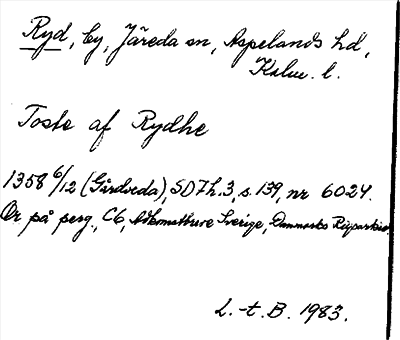 Ryd, by, Järeda sn, Aspelands hd,
Kalm. l.
Toste af Rydhe
1358 6/12 (Gårdveda), SD7 h.3, s. 139, nr 6024.
Or på perg., C6, Adkomstbreve Sverige, Danmarks Rigsarkiv
L.-t. B. 1983.